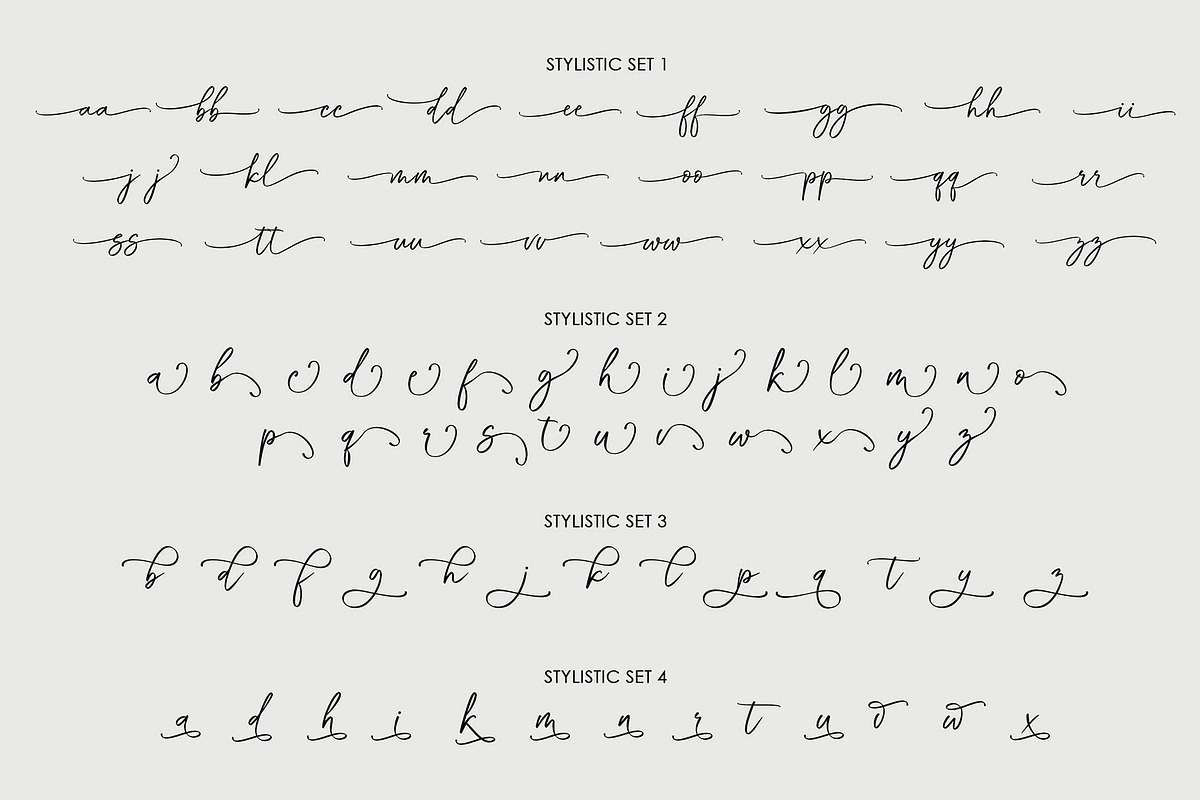 STYLISTIC SET 1
aa bb cc dd ee ff gg hh ii
jj kl mm nn oo pp qq rr
ss tt uu vv ww xx yy zz
STYLISTIC SET 2
a b c d e f g h i j k l m n o
p q r s t u v w x y z
STYLISTIC SET 3
b d f g h j k l p q t y z
STYLISTIC SET 4
a d h i k m n r t u v w x